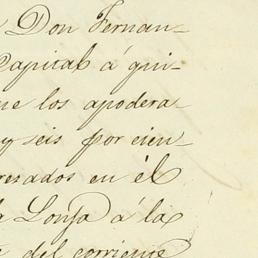 Don Fernan-
Capital á qui-
ue los apodera
y seis por cien-
resados en él
la Lonja á la
del corriente